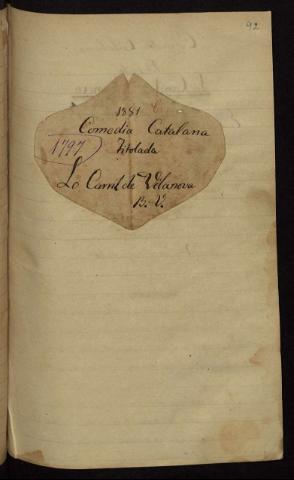 92
1881
Comedia Catalana
1797
Titolada
Lo Carril de Vilanova
B. V.